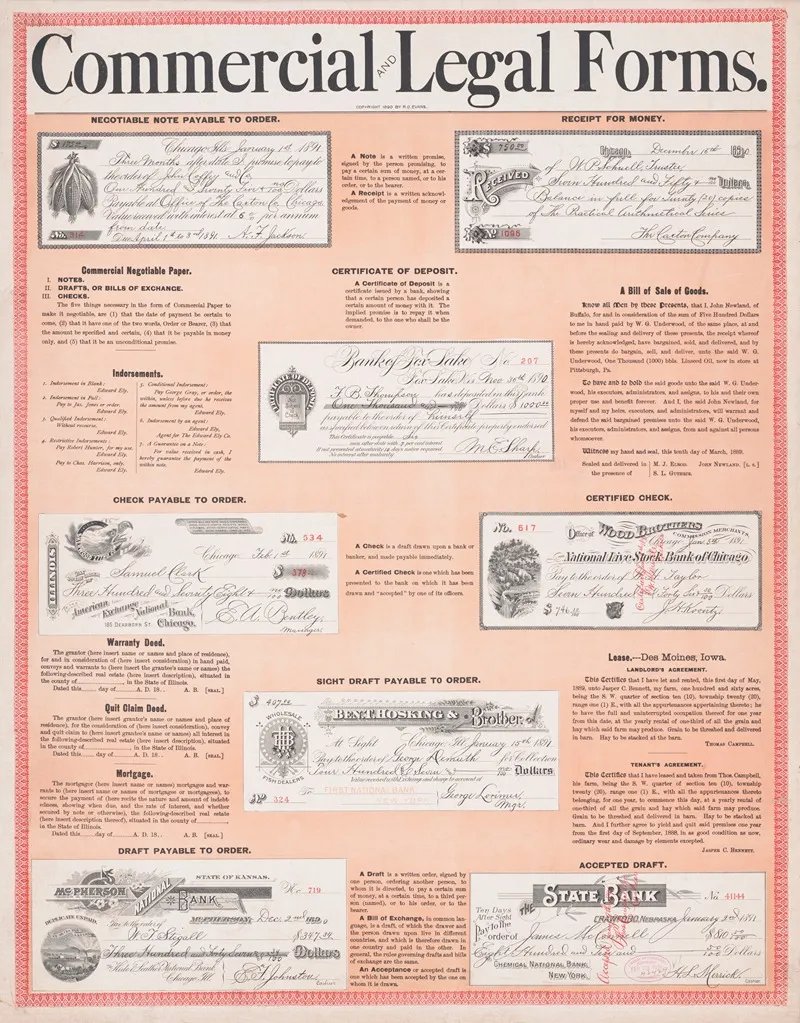 Commercial AND Legal Forms.
COPYRIGHT 1890 BY P. G. EVANS.
NEGOTIABLE NOTE PAYABLE TO ORDER.
Chicago Ills. January 1st 1891
Three Months after date I promise to pay to
the order of John Coffey and Co.
One Hundred & Seventy Five Dollars
Payable at Office of The Caxton Co. Chicago
Value received with interest at 6% per annum
from date.
No. 314 Due April 1st to 3rd 1891. A. F. Jackson
A Note is a written promise,
signed by the person promising, to
pay a certain sum of money, at a cer-
tain time, to a person named, or to his
order, or to the bearer.
A Receipt is a written acknowl-
edgement of the payment of money or
goods.
RECEIPT FOR MONEY.
$ 750.00 Chicago, December 15th 1890
RECEIVED of W. P. Schnell, Trustee
Seven Hundred and Fifty Dollars
Balance in full for Twenty (20) copies
of The Practical Arithmetical Series
No. 1098 The Caxton Company
Commercial Negotiable Paper.
I. NOTES.
II. DRAFTS, OR BILLS OF EXCHANGE.
III. CHECKS.
The five things necessary in the form of Commercial Paper to
make it negotiable, are (1) that the date of payment be certain to
come, (2) that it have one of the two words, Order or Bearer, (3) that
the amount be specified and certain, (4) that it be payable in money
only, and (5) that it be an unconditional promise.
Indorsements.
1. Indorsement in Blank:
Edward Ely.
2. Indorsement in Full:
Pay to Jas. Jones or order.
Edward Ely.
3. Qualified Indorsement:
Without recourse.
Edward Ely.
4. Restrictive Indorsements:
Pay Robert Hunter, for my use.
Edward Ely.
Pay to Chas. Harrison, only.
Edward Ely.
5. Conditional Indorsement:
Pay George Gray, or order, the
within, unless before due he receives
the amount from my agent.
Edward Ely.
6. Indorsement by an agent:
Edward Ely,
Agent for The Edward Ely Co.
7. A Guarantee on a Note:
For value received in cash, I
hereby guarantee the payment of the
within note.
Edward Ely.
CERTIFICATE OF DEPOSIT.
A Certificate of Deposit is a
certificate issued by a bank, showing
that a certain person has deposited a
certain amount of money with it. The
implied promise is to repay it when
demanded, to the one who shall be the
owner.
CERTIFICATE OF DEPOSIT
Bank of Fox Lake No. 207
Fox Lake Wis. Nov. 30th 1890
F. B. Thompson has deposited in this Bank
One Thousand Dollars $1000.00
payable to the order of himself
in specified bankers return of this Certificate properly endorsed
This Certificate is payable Six
No interest after maturity.
M. E. Shark Cashier
A Bill of Sale of Goods.
Know all Men by these Presents, that I, John Newland, of
Buffalo, for and in consideration of the sum of Five Hundred Dollars
to me in hand paid by W. G. Underwood, of the same place, at and
before the sealing and delivery of these presents, the receipt whereof
is hereby acknowledged, have bargained, sold, and delivered, and by
these presents do bargain, sell, and deliver, unto the said W. G.
Underwood, One Thousand (1000) bbls. Linseed Oil, now in store at
Pittsburgh, Pa.
To have and to hold the said goods unto the said W. G. Under-
wood, his executors, administrators, and assigns, to his and their own
proper use and benefit forever. And I, the said John Newland, for
myself and my heirs, executors, and administrators, will warrant and
defend the said bargained premises unto the said W. G. Underwood,
his executors, administrators, and assigns, from and against all persons
whomsoever.
Witness my hand and seal, this tenth day of March, 1889.
Sealed and delivered in M. J. Elmor. John Newland. [L. S.]
the presence of S. L. Guthrie.
CHECK PAYABLE TO ORDER.
ILLINOIS
No. 534
Chicago, Feb. 1st 1891
Samuel Clark $ 378
Three Hundred and Seventy Eight Dollars
American Exchange National Bank,
185 DEARBORN ST. Chicago.
E. A. Bentley,
Manager.
A Check is a draft drawn upon a bank or
banker, and made payable immediately.
A Certified Check is one which has been
presented to the bank on which it has been
drawn and "accepted" by one of its officers.
CERTIFIED CHECK.
No. 517 Office of WOOD BROTHERS
COMMISSION MERCHANTS,
Chicago, Jan. 5th 1891
National Live Stock Bank of Chicago
Pay to the order of Taylor
Seven Hundred Forty Six Dollars
$ 746 J. H. Koontz
Warranty Deed.
The grantor (here insert name or names and place of residence),
for and in consideration of (here insert consideration) in hand paid,
conveys and warrants to (here insert the grantee's name or names) the
following-described real estate (here insert description), situated in
the county of, in the State of Illinois.
Dated this day of A. D. 18 . A. B. [SEAL]
Quit Claim Deed.
The grantor (here insert grantor's name or names and place of
residence), for the consideration of (here insert consideration), convey
and quit claim to (here insert grantee's name or names) all interest in
the following-described real estate (here insert description), situated
in the county of, in the State of Illinois.
Dated this day of A. D. 18 . A. B. [SEAL]
Mortgage.
The mortgagor (here insert name or names) mortgages and war-
rants to (here insert name or names of mortgagee or mortgagees), to
secure the payment of (here recite the nature and amount of indebt-
edness, showing when due, and the rate of interest, and whether
secured by note or otherwise), the following-described real estate
(here insert description thereof), situated in the county of
in the State of Illinois.
Dated this day of A. D. 18 . A. B. [SEAL]
SIGHT DRAFT PAYABLE TO ORDER.
$ 407.00
WHOLESALE FISH DEALERS
BENT, HOSKING & Brother,
At Sight Chicago, Ill. January 15th 1891
Pay to the order of George Nemuth for Collection
Four Hundred & Seven Dollars
value received and charge to account of
To FIRST NATIONAL BANK,
NEW YORK.
No. 324 George Lorimer,
Mgr.
Lease.—Des Moines, Iowa.
LANDLORD'S AGREEMENT.
This Certifies that I have let and rented, this first day of May,
1889, unto Jasper C. Bennett, my farm, one hundred and sixty acres,
being the S. W. quarter of section ten (10), township twenty (20),
range one (1) E., with all the appurtenances appertaining thereto; he
to have the full and uninterrupted occupation thereof for one year
from this date, at the yearly rental of one-third of all the grain and
hay which said farm may produce. Grain to be threshed and delivered
in barn. Hay to be stacked at the barn.
Thomas Campbell.
TENANT'S AGREEMENT.
This Certifies that I have leased and taken from Thos. Campbell,
his farm, being the S. W. quarter of section ten (10), township
twenty (20), range one (1) E., with all the appurtenances thereto
belonging, for one year, to commence this day, at a yearly rental of
one-third of all the grain and hay which said farm may produce.
Grain to be threshed and delivered in barn. Hay to be stacked at
barn. And I further agree to yield and quit said premises one year
from the first day of September, 1888, in as good condition as now,
ordinary wear and damage by elements excepted.
Jasper C. Bennett.
DRAFT PAYABLE TO ORDER.
STATE OF KANSAS.
McPHERSON NATIONAL BANK No. 719
DUPLICATE UNPAID.
McPHERSON, Dec. 2nd 1890
Pay to the order of
W. T. Stegall $347.24
Three Hundred and Forty Seven Dollars
Hide & Leather National Bank
Chicago Ill. E. F. Johnston
Cashier.
A Draft is a written order, signed by
one person, ordering another person, to
whom it is directed, to pay a certain sum
of money, at a certain time, to a third per
son (named), or to his order, or to the
bearer.
A Bill of Exchange, in common lan-
guage, is a draft, of which the drawer and
the person drawn upon live in different
countries, and which is therefore drawn in
one country and paid in the other. In
general, the rules governing drafts and bills
of exchange are the same.
An Acceptance or accepted draft is
one which has been accepted by the one on
whom it is drawn.
ACCEPTED DRAFT.
THE STATE BANK No. 41144
Ten Days
After Sight
CRAWFORD, NEBRASKA, January 2nd 1891
Pay to the
order of James McConnell $80
Eight Hundred and Dollars
CHEMICAL NATIONAL BANK,
NEW YORK.
H. S. Merrick
Cashier.